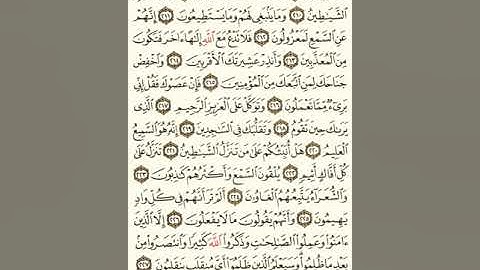 ٱلشَّيَٰطِينُ ﴿٢١٠﴾ وَمَا يَنۢبَغِى لَهُمْ وَمَا يَسْتَطِيعُونَ ﴿٢١١﴾ إِنَّهُمْ
عَنِ ٱلسَّمْعِ لَمَعْزُولُونَ ﴿٢١٢﴾ فَلَا تَدْعُ مَعَ ٱللَّهِ إِلَٰهًا ءَاخَرَ فَتَكُونَ
مِنَ ٱلْمُعَذَّبِينَ ﴿٢١٣﴾ وَأَنذِرْ عَشِيرَتَكَ ٱلْأَقْرَبِينَ ﴿٢١٤﴾ وَٱخْفِضْ
جَنَاحَكَ لِمَنِ ٱتَّبَعَكَ مِنَ ٱلْمُؤْمِنِينَ ﴿٢١٥﴾ فَإِنْ عَصَوْكَ فَقُلْ إِنِّى
بَرِىٓءٌ مِّمَّا تَعْمَلُونَ ﴿٢١٦﴾ وَتَوَكَّلْ عَلَى ٱلْعَزِيزِ ٱلرَّحِيمِ ﴿٢١٧﴾ ٱلَّذِى
يَرَىٰكَ حِينَ تَقُومُ ﴿٢١٨﴾ وَتَقَلُّبَكَ فِى ٱلسَّٰجِدِينَ ﴿٢١٩﴾ إِنَّهُۥ هُوَ ٱلسَّمِيعُ
ٱلْعَلِيمُ ﴿٢٢٠﴾ هَلْ أُنَبِّئُكُمْ عَلَىٰ مَن تَنَزَّلُ ٱلشَّيَٰطِينُ ﴿٢٢١﴾ تَنَزَّلُ عَلَىٰ
كُلِّ أَفَّاكٍ أَثِيمٍ ﴿٢٢٢﴾ يُلْقُونَ ٱلسَّمْعَ وَأَكْثَرُهُمْ كَٰذِبُونَ ﴿٢٢٣﴾
وَٱلشُّعَرَآءُ يَتَّبِعُهُمُ ٱلْغَاوُۥنَ ﴿٢٢٤﴾ أَلَمْ تَرَ أَنَّهُمْ فِى كُلِّ وَادٍ
يَهِيمُونَ ﴿٢٢٥﴾ وَأَنَّهُمْ يَقُولُونَ مَا لَا يَفْعَلُونَ ﴿٢٢٦﴾ إِلَّا ٱلَّذِينَ
ءَامَنُوا۟ وَعَمِلُوا۟ ٱلصَّٰلِحَٰتِ وَذَكَرُوا۟ ٱللَّهَ كَثِيرًا وَٱنتَصَرُوا۟ مِنۢ
بَعْدِ مَا ظُلِمُوا۟ وَسَيَعْلَمُ ٱلَّذِينَ ظَلَمُوٓا۟ أَىَّ مُنقَلَبٍ يَنقَلِبُونَ ﴿٢٢٧﴾